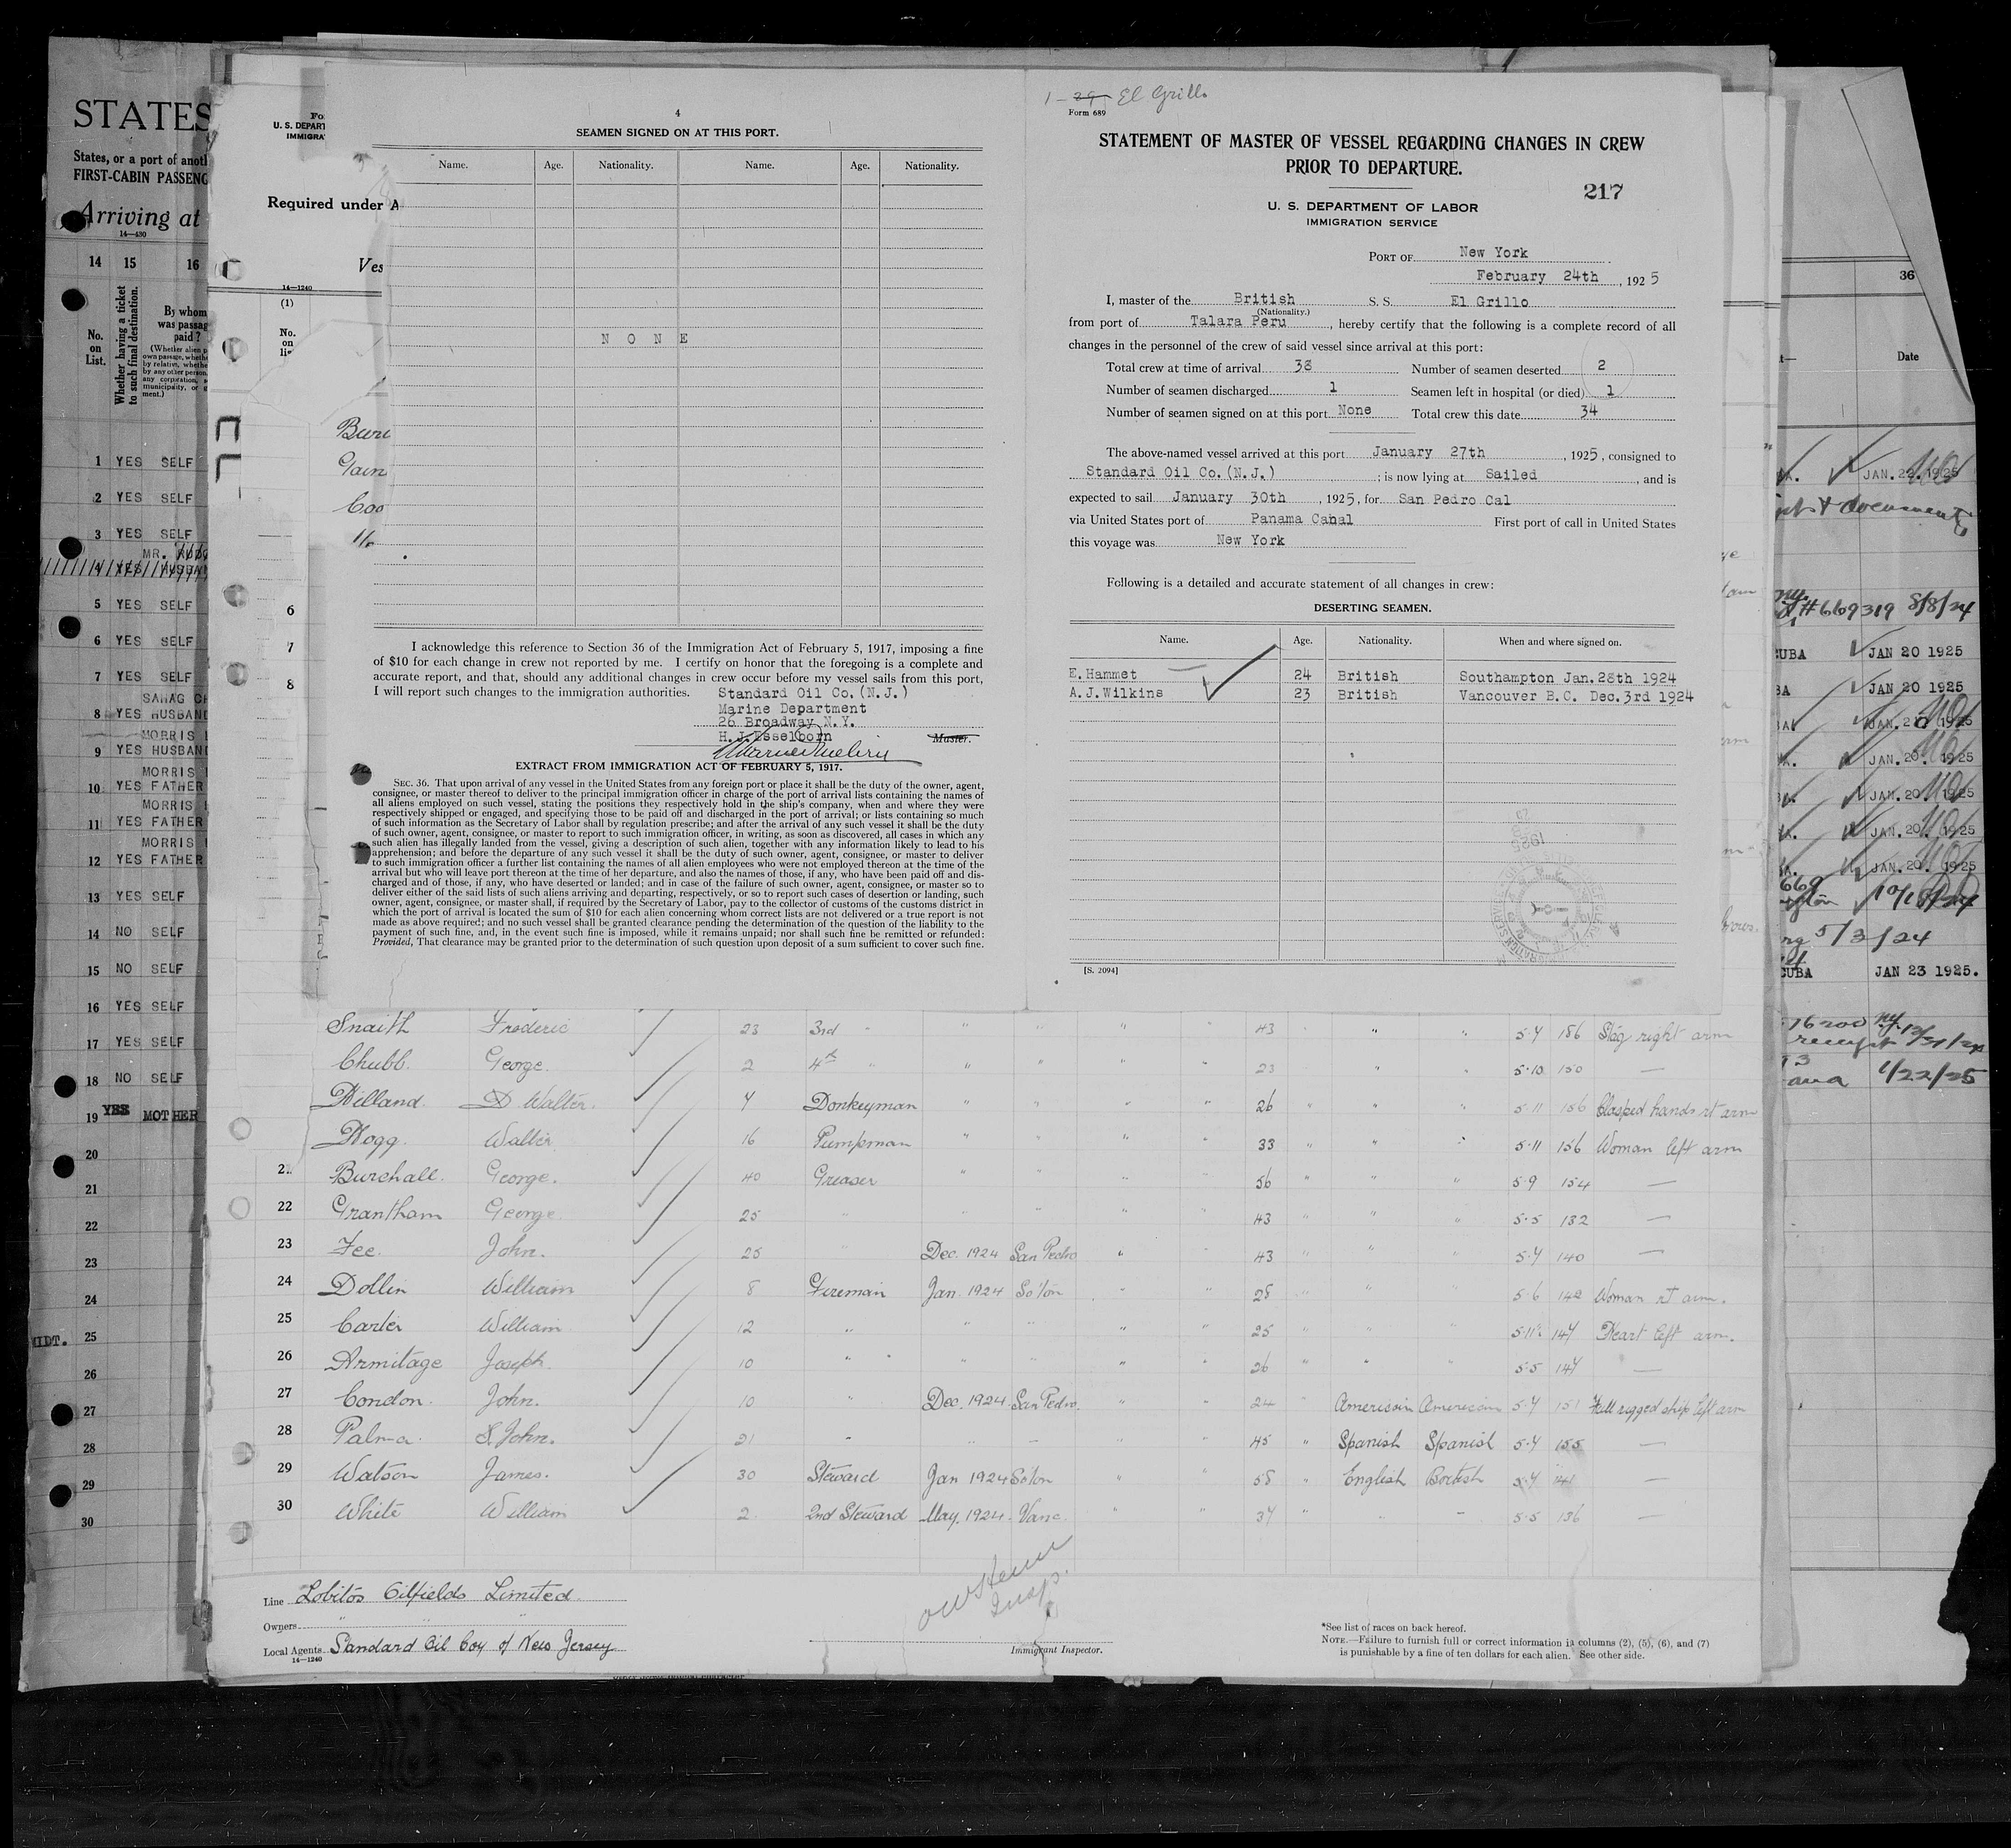 4
SEAMEN SIGNED ON AT THIS PORT.
Name. Age. Nationality. Name. Age. Nationality.
N O N E
I acknowledge this reference to Section 36 of the Immigration Act of February 5, 1917, imposing a fine
of $10 for each change in crew not reported by me. I certify on honor that the foregoing is a complete and
accurate report, and that, should any additional changes in crew occur before my vessel sails from this port,
I will report such changes to the immigration authorities. Standard Oil Co.(N.J.)
Marine Department
26 Broadway N.Y.
H.J.Esselborn Master.
EXTRACT FROM IMMIGRATION ACT OF FEBRUARY 5, 1917.
SEC. 36. That upon arrival of any vessel in the United States from any foreign port or place it shall be the duty of the owner, agent,
consignee, or master thereof to deliver to the principal immigration officer in charge of the port of arrival lists containing the names of
all aliens employed on such vessel, stating the positions they respectively hold in the ship's company, when and where they were
respectively shipped or engaged, and specifying those to be paid off and discharged in the port of arrival; or lists containing so much
of such information as the Secretary of Labor shall by regulation prescribe; and after the arrival of any such vessel it shall be the duty
of such owner, agent, consignee, or master to report to such immigration officer, in writing, as soon as discovered, all cases in which any
such alien has illegally landed from the vessel, giving a description of such alien, together with any information likely to lead to his
apprehension; and before the departure of any such vessel it shall be the duty of such owner, agent, consignee, or master to deliver
to such immigration officer a further list containing the names of all alien employees who were not employed thereon at the time of the
arrival but who will leave port thereon at the time of her departure, and also the names of those, if any, who have been paid off and dis-
charged and of those, if any, who have deserted or landed; and in case of the failure of such owner, agent, consignee, or master so to
deliver either of the said lists of such aliens arriving and departing, respectively, or so to report such cases of desertion or landing, such
owner, agent, consignee, or master, shall, if required by the Secretary of Labor, pay to the collector of customs of the customs district in
which the port of arrival is located the sum of $10 for each alien concerning whom correct lists are not delivered or a true report is not
made as above required; and no such vessel shall be granted clearance pending the determination of the question of the liability to the
payment of such fine, and, in the event such fine is imposed, while it remains unpaid; nor shall such fine be remitted or refunded:
Provided, That clearance may be granted prior to the determination of such question upon deposit of a sum sufficient to cover such fine.
1-29 El Grillo
Form 689
STATEMENT OF MASTER OF VESSEL REGARDING CHANGES IN CREW
PRIOR TO DEPARTURE.
217
U. S. DEPARTMENT OF LABOR
IMMIGRATION SERVICE
PORT OF New York
February 24th, 1925
I, master of the British S. S. El Grillo
(Nationality.)
from port of Talara Peru, hereby certify that the following is a complete record of all
changes in the personnel of the crew of said vessel since arrival at this port:
Total crew at time of arrival 38 Number of seamen deserted 2
Number of seamen discharged 1 Seamen left in hospital (or died) 1
Number of seamen signed on at this port None Total crew this date 34
The above-named vessel arrived at this port January 27th, 1925, consigned to
Standard Oil Co.(N.J.); is now lying at Sailed, and is
expected to sail January 30th, 1925, for San Pedro Cal
via United States port of Panama Canal First port of call in United States
this voyage was New York
Following is a detailed and accurate statement of all changes in crew:
DESERTING SEAMEN.
Name. Age. Nationality. When and where signed on.
E.Hammet 24 British Southampton Jan.28th 1924
A.J.Wilkins 23 British Vancouver B.C. Dec.3rd 1924
[S. 2094]
Snaith Frederic 23 3rd " " " " " 43 " " " 5·4 186 Stag right arm
Chubb. George. 2 4th " " " " 23 " " 5·10 150 —
Helland. D Walter. 4 Donkeyman " " " " 26 " " " 5·11 156 Clasped hands rt arm
Hogg. Walter 16 Pumpman " " " " 33 " " " 5·11 156 Woman left arm
21 Burchall. George. 40 Greaser " " " " 56 " " " 5·9 154 —
22 Grantham George. 25 " " " " " 43 " " " 5·5 132 —
23 Fee. John. 25 " Dec. 1924 San Pedro " " 43 " " " 5·4 140 —
24 Dollin William 8 Fireman Jan. 1924 So'ton " " 28 " " " 5·6 142 Woman rt arm.
25 Carter William 12 " " " " " 25 " " " 5·11½ 147 Heart left arm.
26 Armitage Joseph. 10 " " " " " 26 " " " 5·5 147 —
27 Condon. John. 10 " Dec. 1924 San Pedro. " " 24 " American American 5·4 151 Full rigged ship left arm
28 Palma. S. John. 21 " " " " " 45 " Spanish Spanish 5·4 155 —
29 Watson James. 30 Steward Jan 1924 So'ton " " 58 " English British 5·4 —
30 White William 2 2nd Steward May. 1924 Vanc. " " 37 " " " 5·5 136 —
Line Lobitos Oilfields Limited.
Owners " " "
Local Agents Standard Oil Coy of New Jersey
14—1240
Immigrant Inspector.
*See list of races on back hereof.
NOTE.—Failure to furnish full or correct information in columns (2), (5), (6), and (7)
is punishable by a fine of ten dollars for each alien. See other side.
STATES
States, or a port of anoth
FIRST-CABIN PASSENG
Arriving at
14—430
14 15 16
No. on List.
Whether having a ticket to such final destination.
By whom was passag paid?
1 YES SELF
2 YES SELF
3 YES SELF
4 YES HUSBAN
5 YES SELF
6 YES SELF
7 YES SELF
8 YES HUSBAND
MORRIS
9 YES HUSBAN
MORRIS
10 YES FATHER
MORRIS
11 YES FATHER
MORRIS
12 YES FATHER
13 YES SELF
14 NO SELF
15 NO SELF
16 YES SELF
17 YES SELF
18 NO SELF
19 YES MOTHER
20
21
22
23
24
MIDT. 25
26
27
28
29
30
U. S. DEPART
IMMIGRA
Required under A
Ves
14—1240
(1)
No.
on
6
7
8
36
Date
JAN. 22. 1925
#669319 8/8/24
CUBA JAN 20 1925
JAN 20 1925
JAN. 21. 1925
JAN. 20. 1925
JAN. 20. 1925
JAN. 20. 1925
JAN. 20. 1925
5/3/24
CUBA JAN 23 1925.
1/22/25